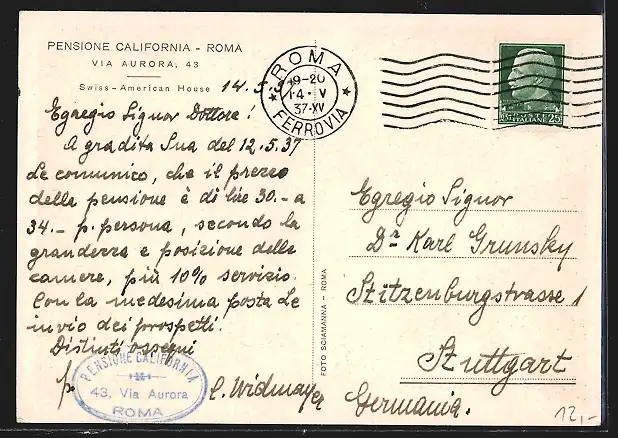 PENSIONE CALIFORNIA - ROMA
VIA AURORA, 43
Swiss-American House
14.5.
Egregio Signor Dottore!
A gradita Sua del 12.5.37
Le comunico, che il prezzo
della pensione è di lire 30.- a
34.- p. persona, secondo la
grandezza e posizione delle
camere, più 10% servizio.
Con la medesima posta Le
invio dei prospetti.
Distinti ossequi
p.
C. Widmayer
PENSIONE CALIFORNIA
43, Via Aurora
ROMA
FOTO SCIAMANNA - ROMA
ROMA
19-20
14·V
37·XV
FERROVIA
POSTE
ITALIANE
25
Egregio Signor
Dr Karl Grunsky
Stitzenburgstrasse 1
Stuttgart
Germania.
12,-